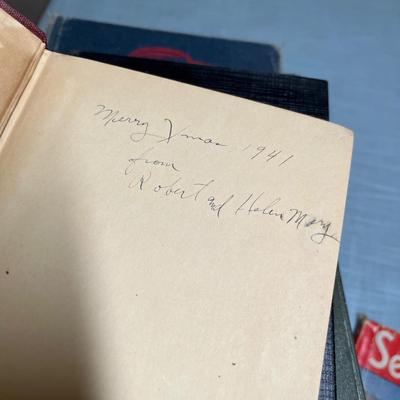 Merry Xmas 1941
from
Robert and Helen Mary
Se